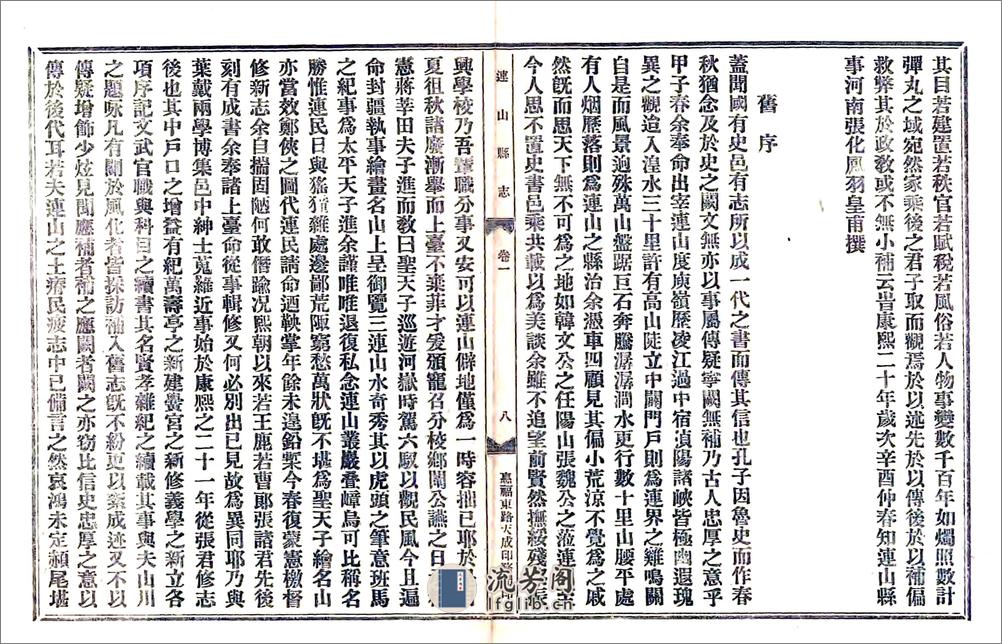 其目若建置若秩官若賦稅若風俗若人物事變數千百年如燭照數計
彈丸之域宛然家乘後之君子取而觀焉於以述先於以傳後於以補偏
救弊其於政教或不無小補云旹康熙二十年歲次辛酉仲春知連山縣
事河南張化鳳羽皇甫撰
舊序
蓋聞國有史邑有志所以成一代之書而傳其信也孔子因魯史而作春
秋猶念及於史之闕文無亦以事屬傳疑寧闕無補乃古人忠厚之意乎
甲子春余奉命出宰連山度庾嶺歷凌江過中宿湞陽諸峽皆極幽遐瑰
異之觀造入湟水三十里許有高山陡立中闢門戶則為連界之雞鳴關
自是而風景逈殊萬山盤踞巨石奔騰潺潺澗水更行數十里山腰平處
有人烟歷落則為連山之縣治余憑車四顧見其偏小荒涼不覺為之戚
然旣而思天下無不可為之地如韓文公之任陽山張魏公之涖連至
今人思不置史書邑乘共載以為美談余雖不追望前賢然撫綏殘
連山縣志
卷一
八
惠福東路大成印務
興學校乃吾輩職分事又安可以連山僻地僅為一時容拙已耶於
夏徂秋諸廢漸舉而上臺不棄菲才爰頒寵召分校鄉闈公讌之日
憲蔣莘田夫子進而教曰聖天子巡遊河嶽時駕六馭以觀民風今且遍
命封疆執事繪畫名山上呈御覽三連山水奇秀其以虎頭之筆意班馬
之紀事為太平天子進余謹唯唯退復私念連山叢巖叠嶂鳥可比稱名
勝惟連民日與猺獞雜處邊鄙荒陬窮愁萬狀旣不堪為聖天子繪名山
亦當效鄭俠之圖代連民請命迺鞅掌年餘未遑鉛槧今春復蒙憲檄督
修新志余自揣固陋何敢僭踰况熙朝以來若王鹿若曹郎張諸君先後
刻有成書余奉諸上臺命從事輯修又何必別出已見故為異同耶乃與
葉戴兩學博集邑中紳士蒐羅近事始於康熙之二十一年從張君修志
後也其中戶口之增益有紀萬壽亭之新建黌宮之新修義學之新立各
項序記文武官職與科目之續書其名賢孝雜紀之續載其事與夫山川
之題咏凡有關於風化者皆採訪補入舊志旣不紛更以紊成迹又不以
傳疑增飾少炫見聞應補者補之應闕者闕之亦窃比信史忠厚之意以
傳於後代耳若夫連山之土瘠民疲志中已備言之然哀鴻未定頳尾堪
流芳阁
lfglib.cn